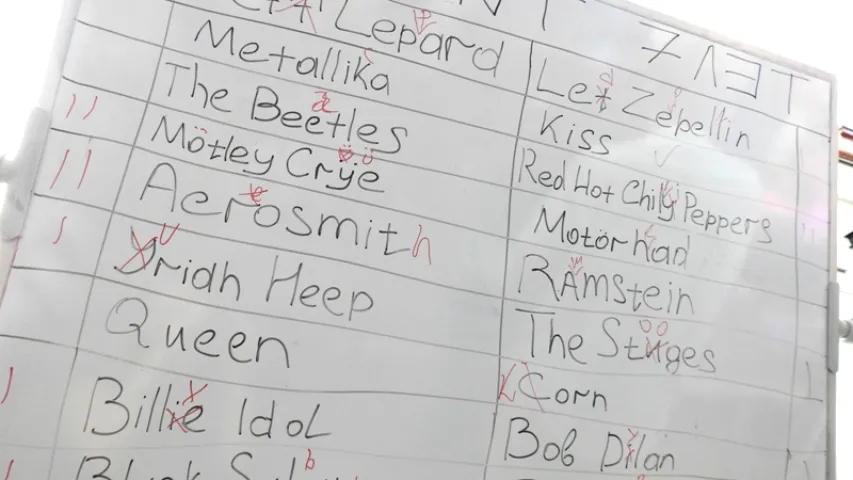 Lepard
Metallika
The Beetles
Mötley Crÿe
Aerosmith
Uriah Heep
Queen
Billie Idol
Black
Let Zebellin
Kiss
Red Hot Chily Peppers
Motörhad
RAmstein
The Stuges
Corn
Bob Dilan